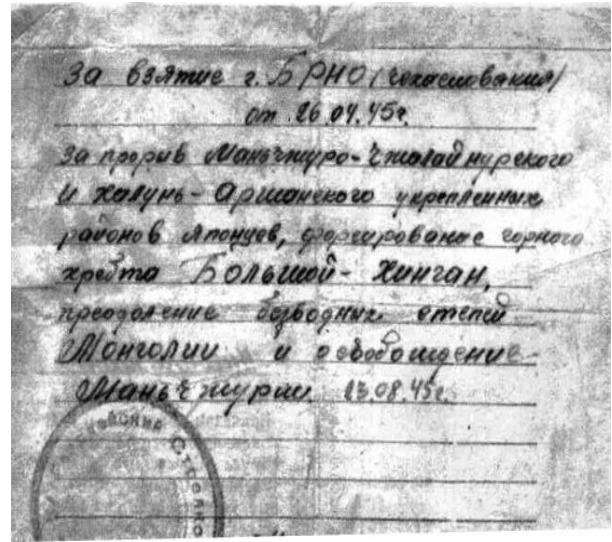 За взятие г. БРНО (чехасловакия)
от 26.04.45г.
За прорыв Маньчжуро-Чжалайнурского
и Халунь-Аршанского укрепленных
районов Японцев, форсирование горного
хребта Большой-Хинган,
преодоление безводных степей
Монголии и освобождение
Маньчжурии 23.08.45г.